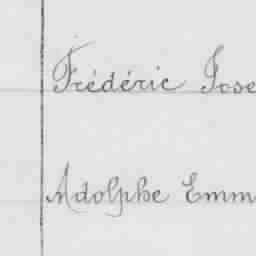 Frédéric Jose
Adolphe Emm